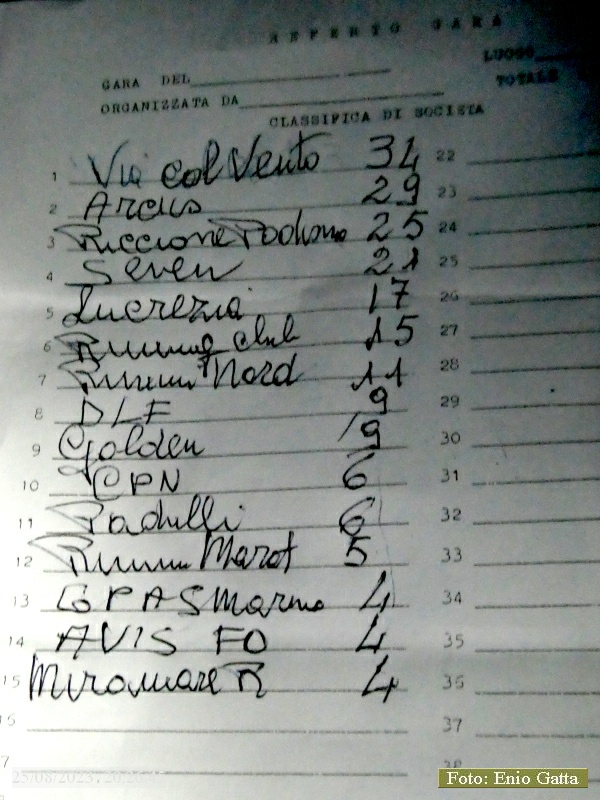 REFERTO GARA
GARA DEL
LUOGO
ORGANIZZATA DA
TOTALE
CLASSIFICA DI SOCIETA
1 Via col Vento 34
2 Arcus 29
3 Riccione Podismo 25
4 Seven 21
5 Lucrezia 17
6 Running club 15
7 Rimini Nord 11
8 DLF 9
9 Golden 9
10 CPN 6
11 Padulli 6
12 Rimini Marat 5
13 GPA S Marino 4
14 AVIS FO 4
15 Miramare R 4
16
17
22
23
24
25
26
27
28
29
30
31
32
33
34
35
36
37
38
25/08/2023, 20:26
Foto: Enio Gatta